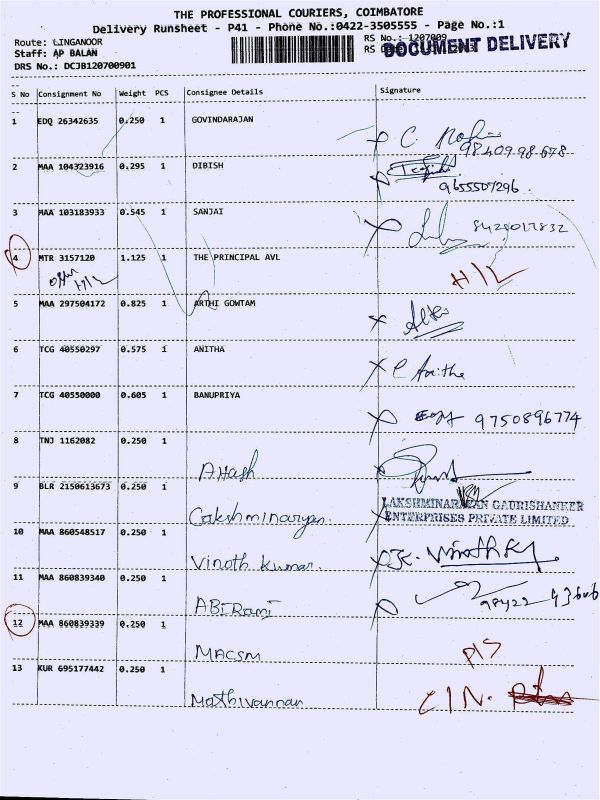 THE PROFESSIONAL COURIERS, COIMBATORE
Delivery Runsheet - P41 - Phone No.:0422-3505555 - Page No.:1
Route: LINGANOOR RS No.: 1207009
Staff: AP BALAN RS
DOCUMENT DELIVERY
DRS No.: DCJB120700901
S No Consignment No Weight PCS Consignee Details Signature
1 EDQ 26342635 0.250 1 GOVINDARAJAN
2 MAA 104323916 0.295 1 DIBISH
9655507296
3 MAA 103183933 0.545 1 SANJAI
4 MTR 3157120 1.125 1 THE PRINCIPAL AVL H/L
H/L
5 MAA 297504172 0.825 1 ARTHI GOWTAM
6 TCG 40550297 0.575 1 ANITHA
7 TCG 40550000 0.605 1 BANUPRIYA 9750896774
8 TNJ 1162082 0.250 1 AKash
9 BLR 2150613673 0.250 1 Lakshminaryan LAKSHMINARAYAN GAURISHANKER
ENTERPRISES PRIVATE LIMITED
10 MAA 860548517 0.250 1 Vinoth Kumar
11 MAA 860839340 0.250 1 ABiRami
12 MAA 860839339 0.250 1 MACSM
13 KUR 695177442 0.250 1 Mathivannan